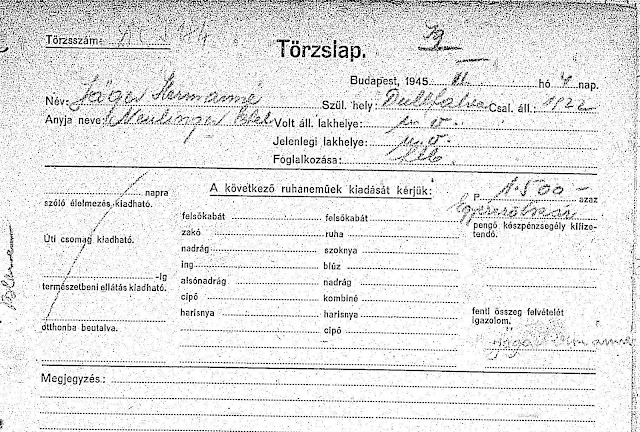 Törzsszám:
Törzslap.
Budapest, 1945. hó nap.
Név: Jäger Hermanné Szül. hely: Dullfalva Csal. áll.: 1922
Anyja neve: Neulinger Etel Volt áll. lakhelye: u. o.
Jelenlegi lakhelye: u. o.
Foglalkozása:
A következő ruhaneműek kiadását kérjük:
napra
szóló élelmezés kiadható.
Úti csomag kiadható.
-ig
természetbeni ellátás kiadható.
otthonba beutalva.
felsőkabát felsőkabát
zakó ruha
nadrág szoknya
ing blúz
alsónadrág nadrág
cipő kombiné
harisnya harisnya
cipő
P 1.500 — azaz
Egyezerötszáz
pengő készpénzsegély kifize-
tendő.
fenti összeg felvételét
igazolom.
Jäger Hermanné
Megjegyzés: